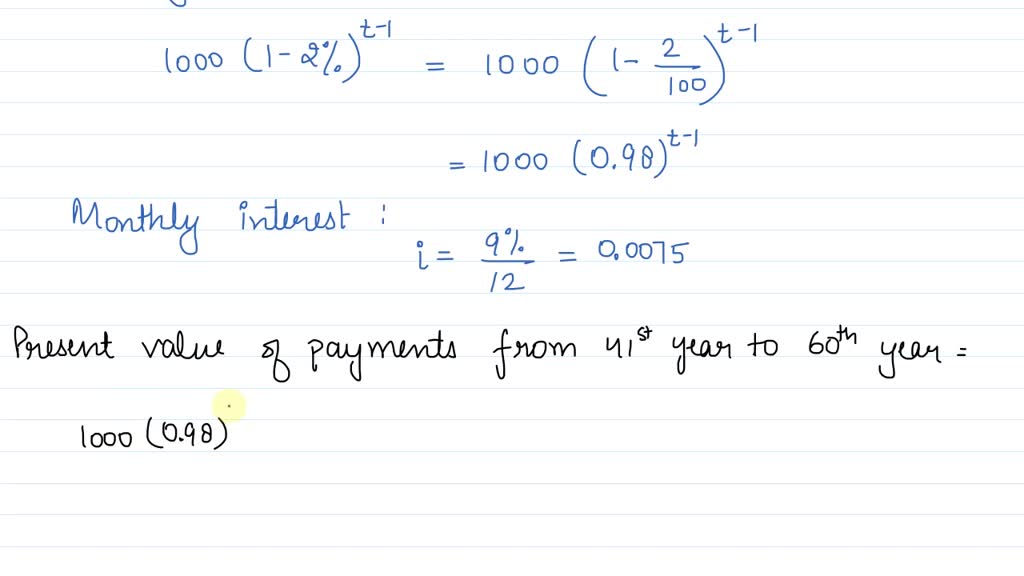 1000 (1-2%)^{t-1} = 1000 (1- 2/100)^{t-1}
= 1000 (0.98)^{t-1}
Monthly interest :
i = 9%/12 = 0.0075
Present value of payments from 41st year to 60th year =
1000 (0.98)